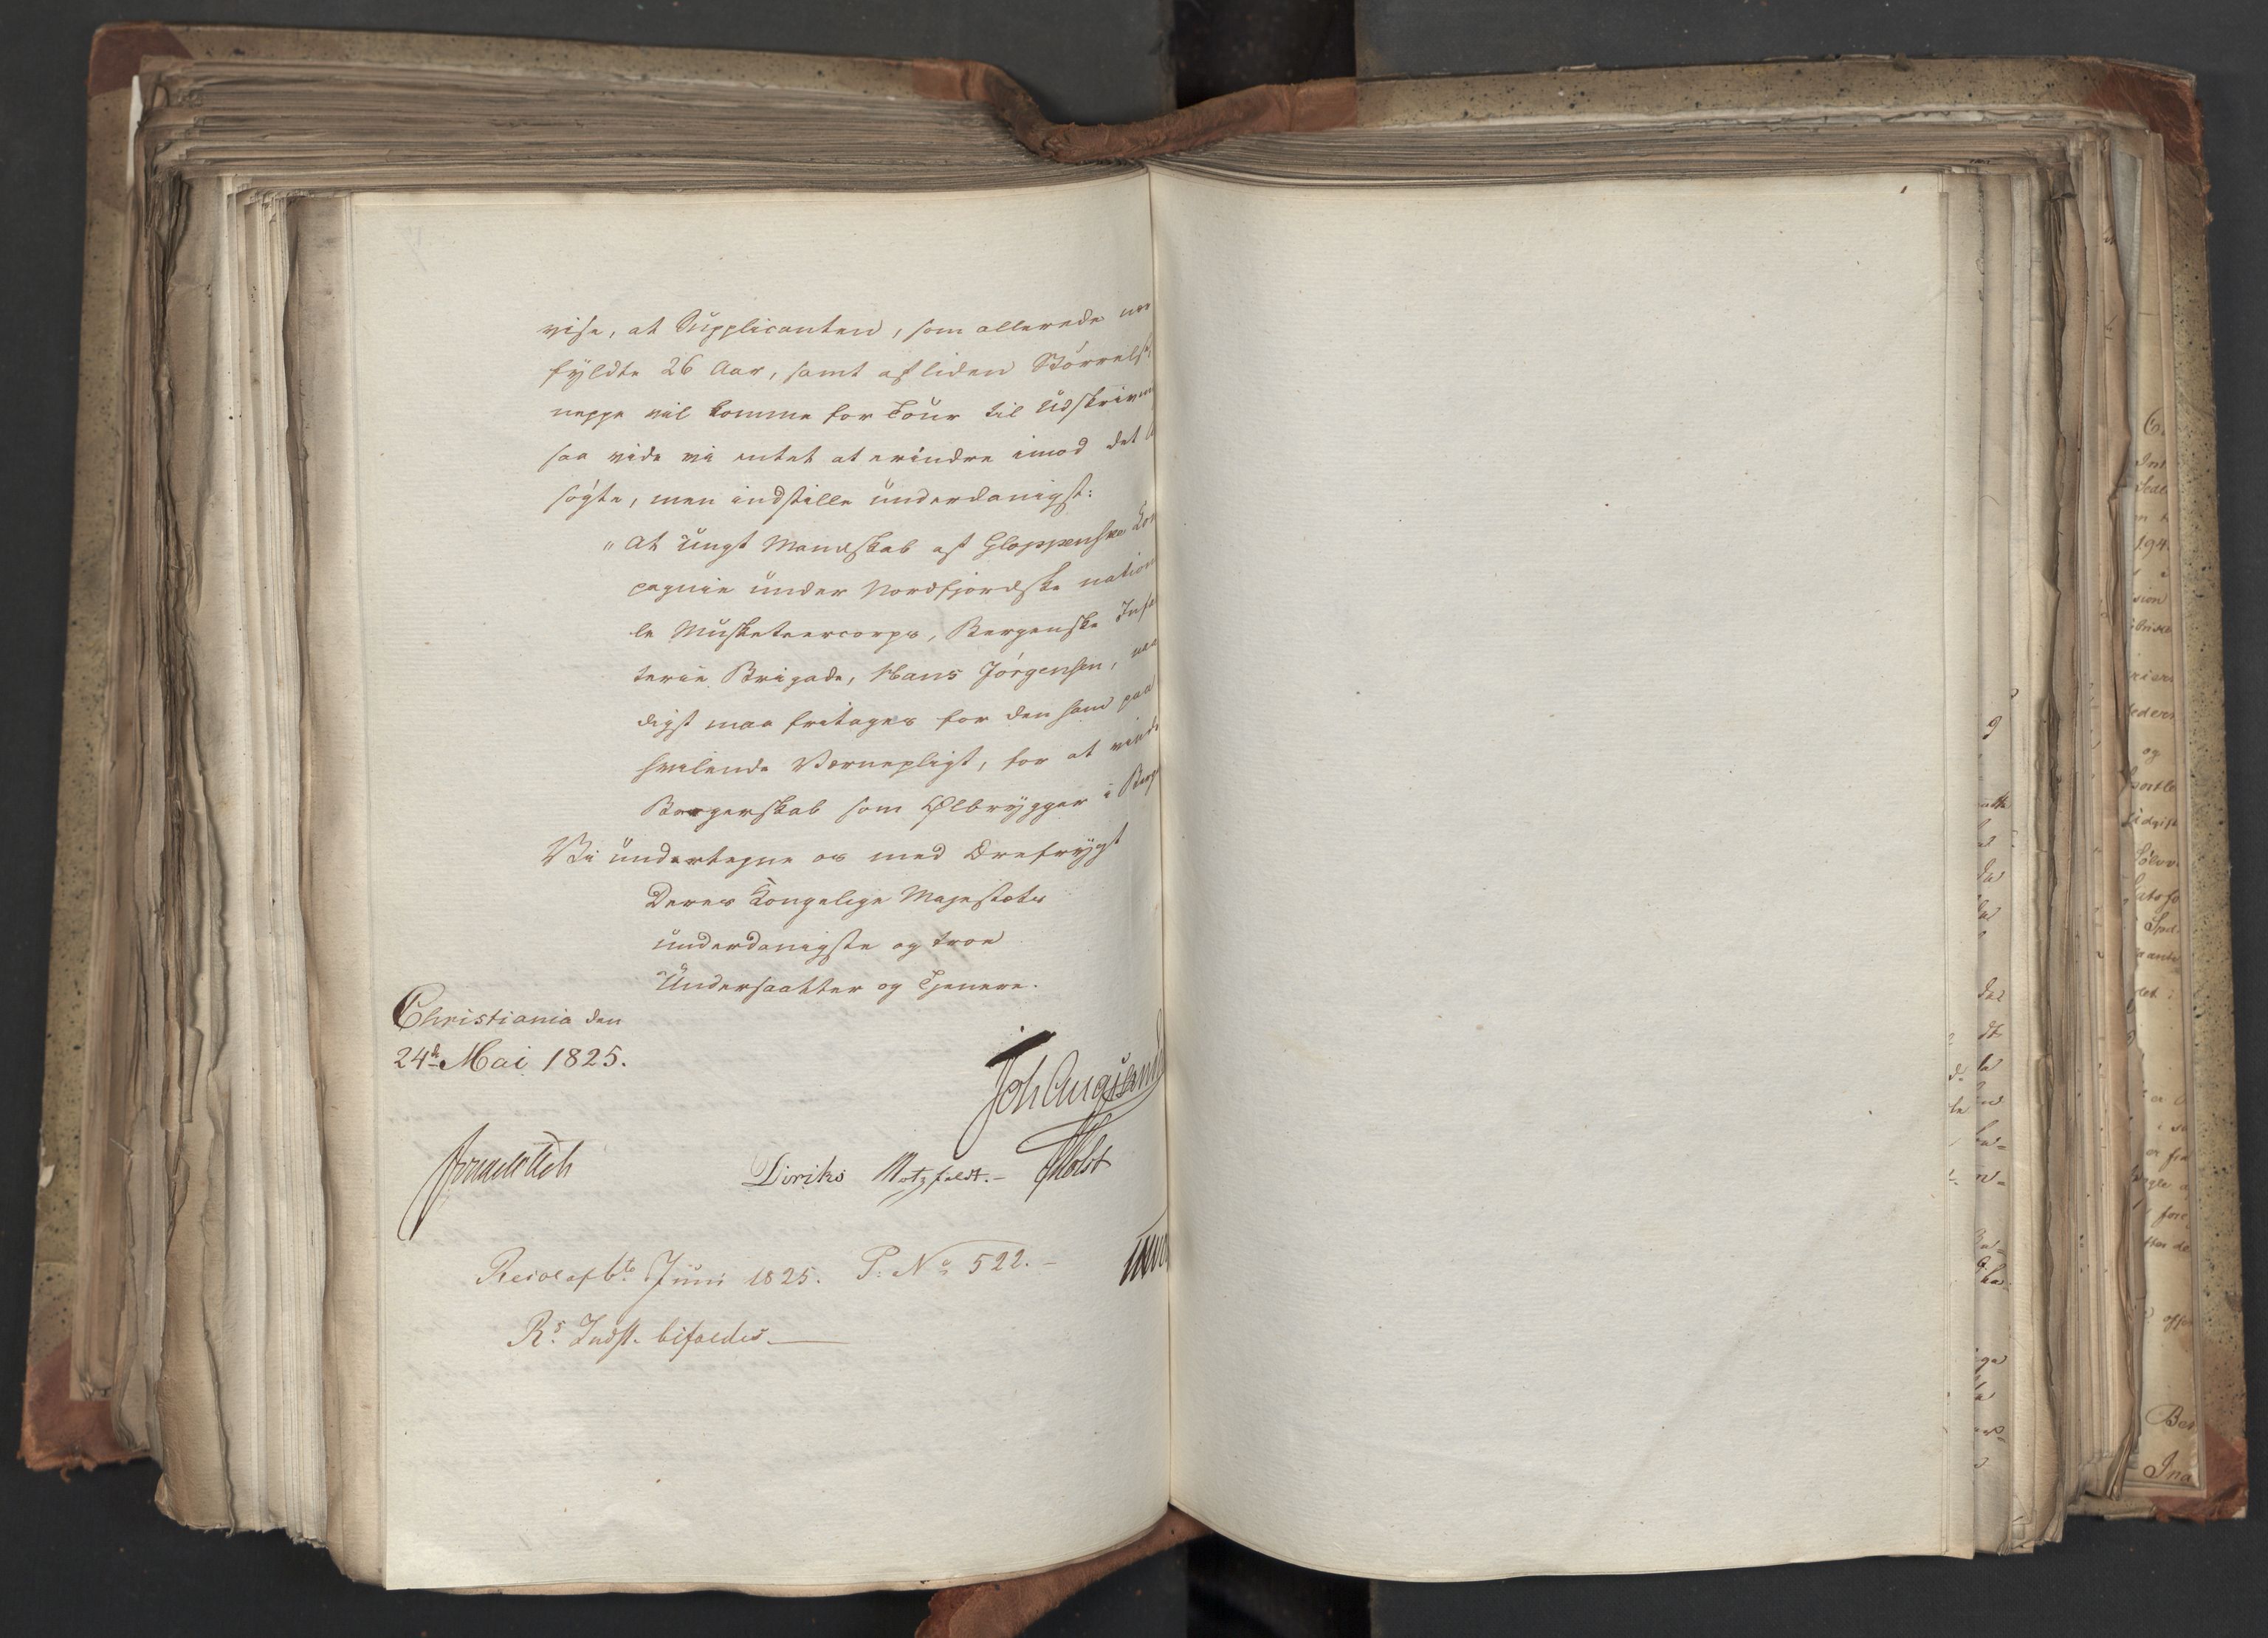 vise, at Supplicanten, som allerede
fyldte 26 Aar, samt af liden Størrelse
neppe vil komme for Tour til Udskriv
saa vide vi intet at erindre imod det
søgte, men indstille underdanigst:
" At ungt Mandskab af Gloppenske Kom
pagnie under Nordfjordske nation
le Musketeercorps, Bergenske Infa
terie Brigade, Hans Jørgensen, naa
digst maa fritages for den ham paa
hvilende Værnepligt, for at vinde
Borgerskab som Ølbrygger i Berg
Vi undertegne os med Ærefrygt
Deres Kongelige Majestæts
underdanigste og troe
Undersaatter og Tjenere.
Christiania den
24de Mai 1825.
Joh Aug Sand
Diriks Motzfeldt.- Holst
Resol af 6te Juni 1825. P: No 522.-
Rs. Indst. bifaldes.